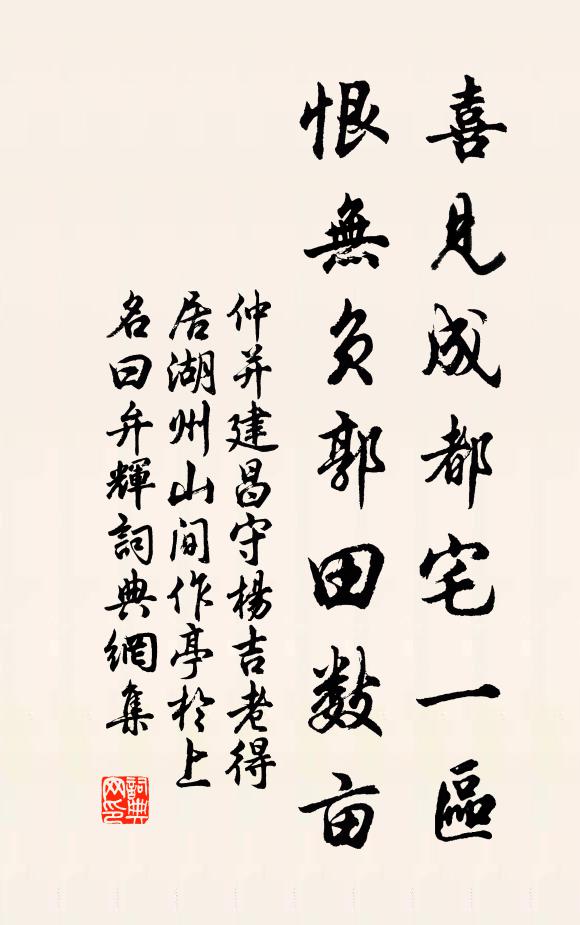 喜見成都宅一區
恨無負郭田數亩
仲并建昌守楊吉老得
居湖州山間作亭於上
名曰弁輝詞典網集
詞典
网印